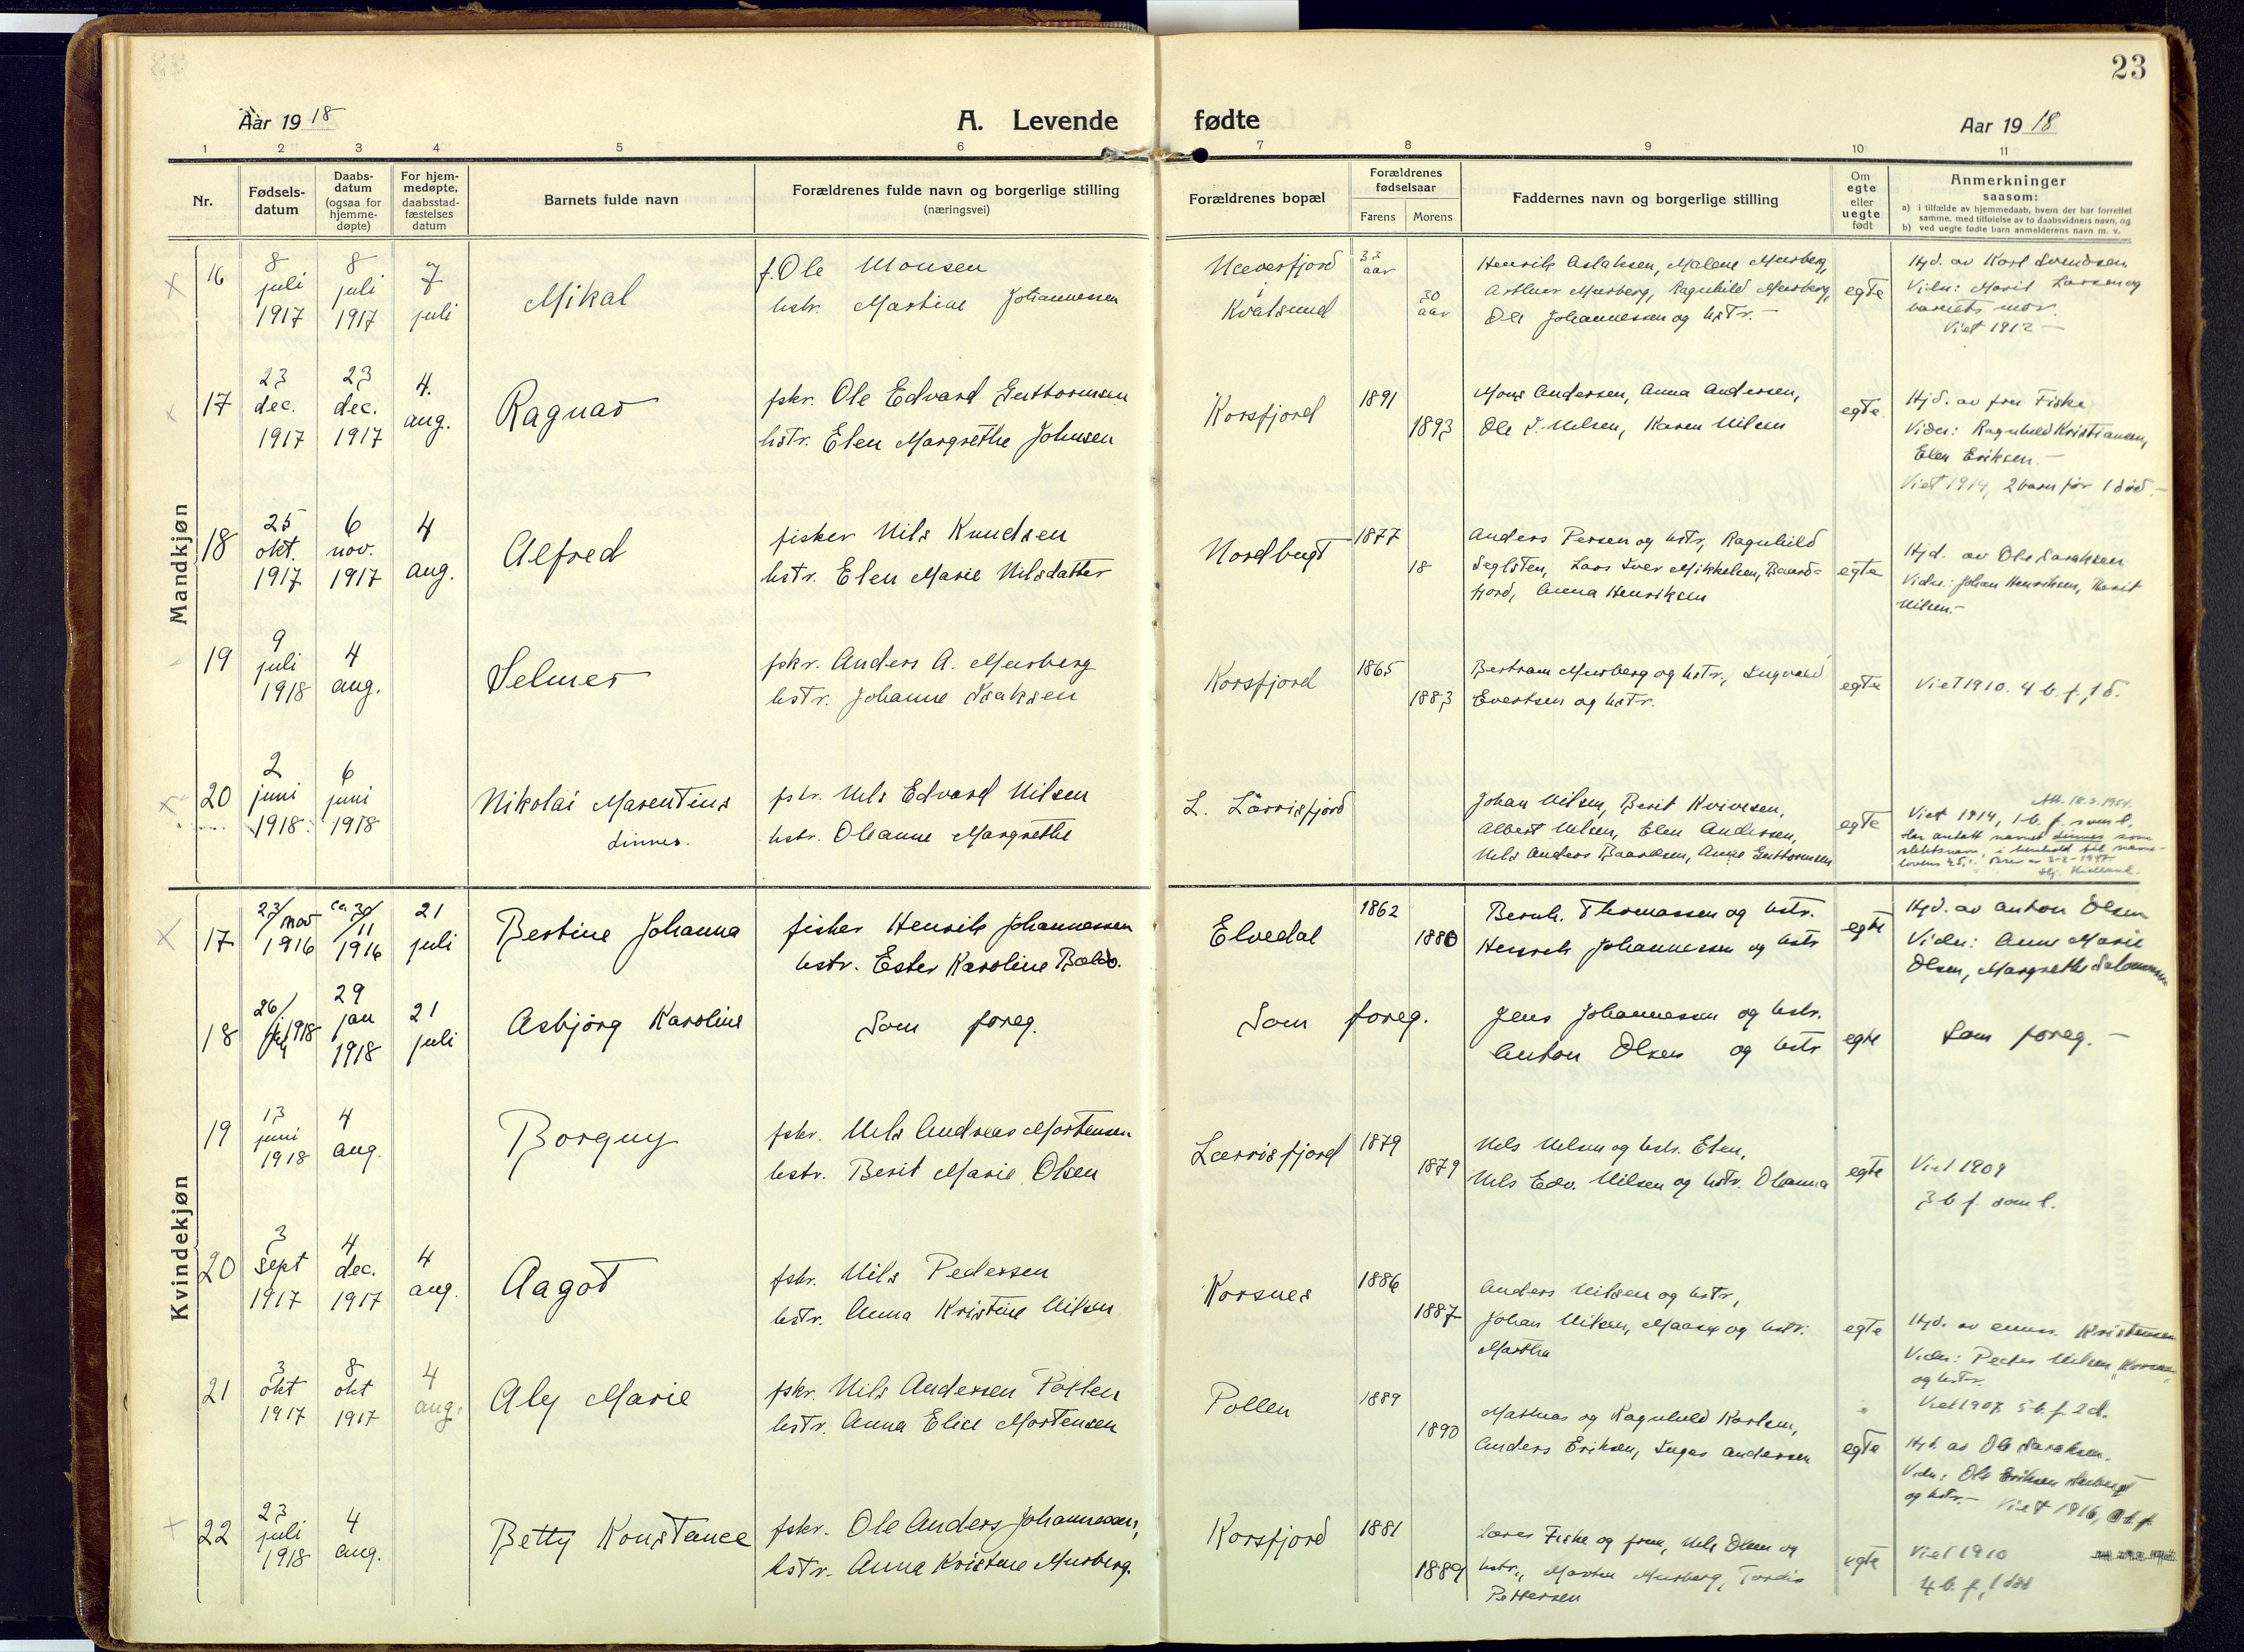 23
Aar 19 18
A. Levende fødte
Aar 19 18
1 2 3 4 5 6 7 8 9 10 11
Nr.
Fødsels-
datum
Daabs-
datum
(ogsaa for
hjemme-
døpte)
For hjem-
medøpte,
daabsstad-
fæstelses
datum
Barnets fulde navn
Forældrenes fulde navn og borgerlige stilling
(næringsvei)
Forældrenes bopæl
Forældrenes
fødselsaar
Farens Morens
Faddernes navn og borgerlige stilling
Om
egte
eller
uegte
født
Anmerkninger
saasom:
a) i tilfælde av hjemmedaab, hvem der har forrettet
samme, med tilføielse av to daabsvidners navn, og
b) ved uegte fødte barn anmelderens navn m. v.
Mandkjøn
16
8
juli
1917
8
juli
1917
7
juli
Mikal
f. Ole Monsen
hstr. Martine Johannessen
Neverfjord
i
Kvalsund
32
aar
30
aar
Henrik Aslaksen, Malene Mursberg,
Arthur Mursberg, Ragnhild Mursberg,
Ole Johannessen og hstr. -
egte
Hjd. av Karl Svendsen
Vidn: Marit Larsen og
barnets mor.
Viet 1912 -
17
23
dec.
1917
23
dec.
1917
4.
aug.
Ragnar
fskr. Ole Edvard Guttormsen
hstr. Elen Margrethe Johnsen
Korsfjord
1891
1893
Mons Andersen, Anna Andersen,
Ole J. Nilsen, Karen Nilsen
egte.
Hjd. av fru Fiske
Vidn: Ragnhild Kristiansen,
Elen Eriksen -
Viet 1914, 2 barn før 1 død. -
18
25
okt.
1917
6
nov.
1917
4
aug.
Alfred
fisker Nils Knudsen
hstr. Elen Marie Nilsdatter
Nordbugt
1877
18
Anders Persen og hstr, Ragnhild
Seglsten, Lars Iver Mikkelsen, Baard-
fjord, Anna Henriksen
egte
Hjd. av Ole Saraksen
Vidn: Johan Henriksen, Berit
Nilsen. -
19
9
juli
1918
4
aug.
Selmer
fskr. Anders A. Mursberg
hstr. Johanne Isaksen
Korsfjord
1865
1883
Bertram Mursberg og hstr., Ingvald
Evertsen og hstr.
egte
Viet 1910. 4 b. f., 1 d.
20
2
juni
1918
6
juni
1918
Nikolai Marentius
Linnes.
fskr. Nils Edvard Nilsen
hstr. Oleanne Margrethe
L. Lærrisfjord
Johan Nilsen, Berit Kvivesen,
Albert Nilsen, Elen Andersen,
Nils Anders Baardsen, Anne Guttormsen
egte
Viet 1914, 1 b. f. saml.
Har antatt navnet Linnes som
slektsnavn, i henhold til navne-
Kvindekjøn
17
23/ nov
1916
ca 30/
11
1916
21
juli
Bertine Johanna
fisker Henrik Johannessen
hstr. Ester Karoline Baldo.
Elvedal
1862
1880
Bernh. Thomassen og hstr.
Henrik Johannessen og hstr
egte
Hjd. av Anton Olsen
Vidn: Anne Marie
Olsen, Margrethe Salomonsen
18
26/
1918
29
jan
1918
21
juli
Asbjørg Karoline
Som foreg.
Som foreg.
Jens Johannessen og hstr.
Anton Olsen og hstr
egte
Som foreg. -
19
13
juni
1918
4
aug.
Borgny
fskr. Nils Andreas Mortensen
hstr. Berit Marie Olsen
Lærrisfjord
1879
1879
Nils Nilsen og hstr. Elen,
Nils Edv. Nilsen og hstr. Oleanna
egte
Viet 1909
3 b f. saml.
20
3
sept
1917
4
dec.
1917
4
aug.
Aagot
fskr. Nils Pedersen
hstr. Anna Kristine Nilsen
Korsnes
1886
1887
Anders Nilsen og hstr,
Johan Nilsen, Maasø og hstr.
Martha
egte
Hjd. av emiss. Kristensen
Vidn: Peder Nilsen, Korsnes
og hstr.
Viet 1907. 5 b. f. 2 d.
21
3
okt
1917
8
okt
1917
4
aug.
Aly Marie
fskr. Nils Andersen Pollen
hstr. Anna Elise Mortensen
Pollen
1889
1890
Mathias og Ragnhild Karlsen,
Anders Eriksen, Inger Andersen
egte
Hjd. av Ole Saraksen.
Vidn: Ole Eriksen
og hstr. - Viet 1916,
22
23
juli
1918
4
aug.
Betty Konstance
fskr. Ole Anders Johannessen,
hstr. Anna Kristine Mursberg.
Korsfjord
1881
1889
Lærer Fiske og frue, Nils Olsen og
hstr., Morten Mursberg, Tordis
Pettersen
egte
Viet 1910
4 b. f., 1 død